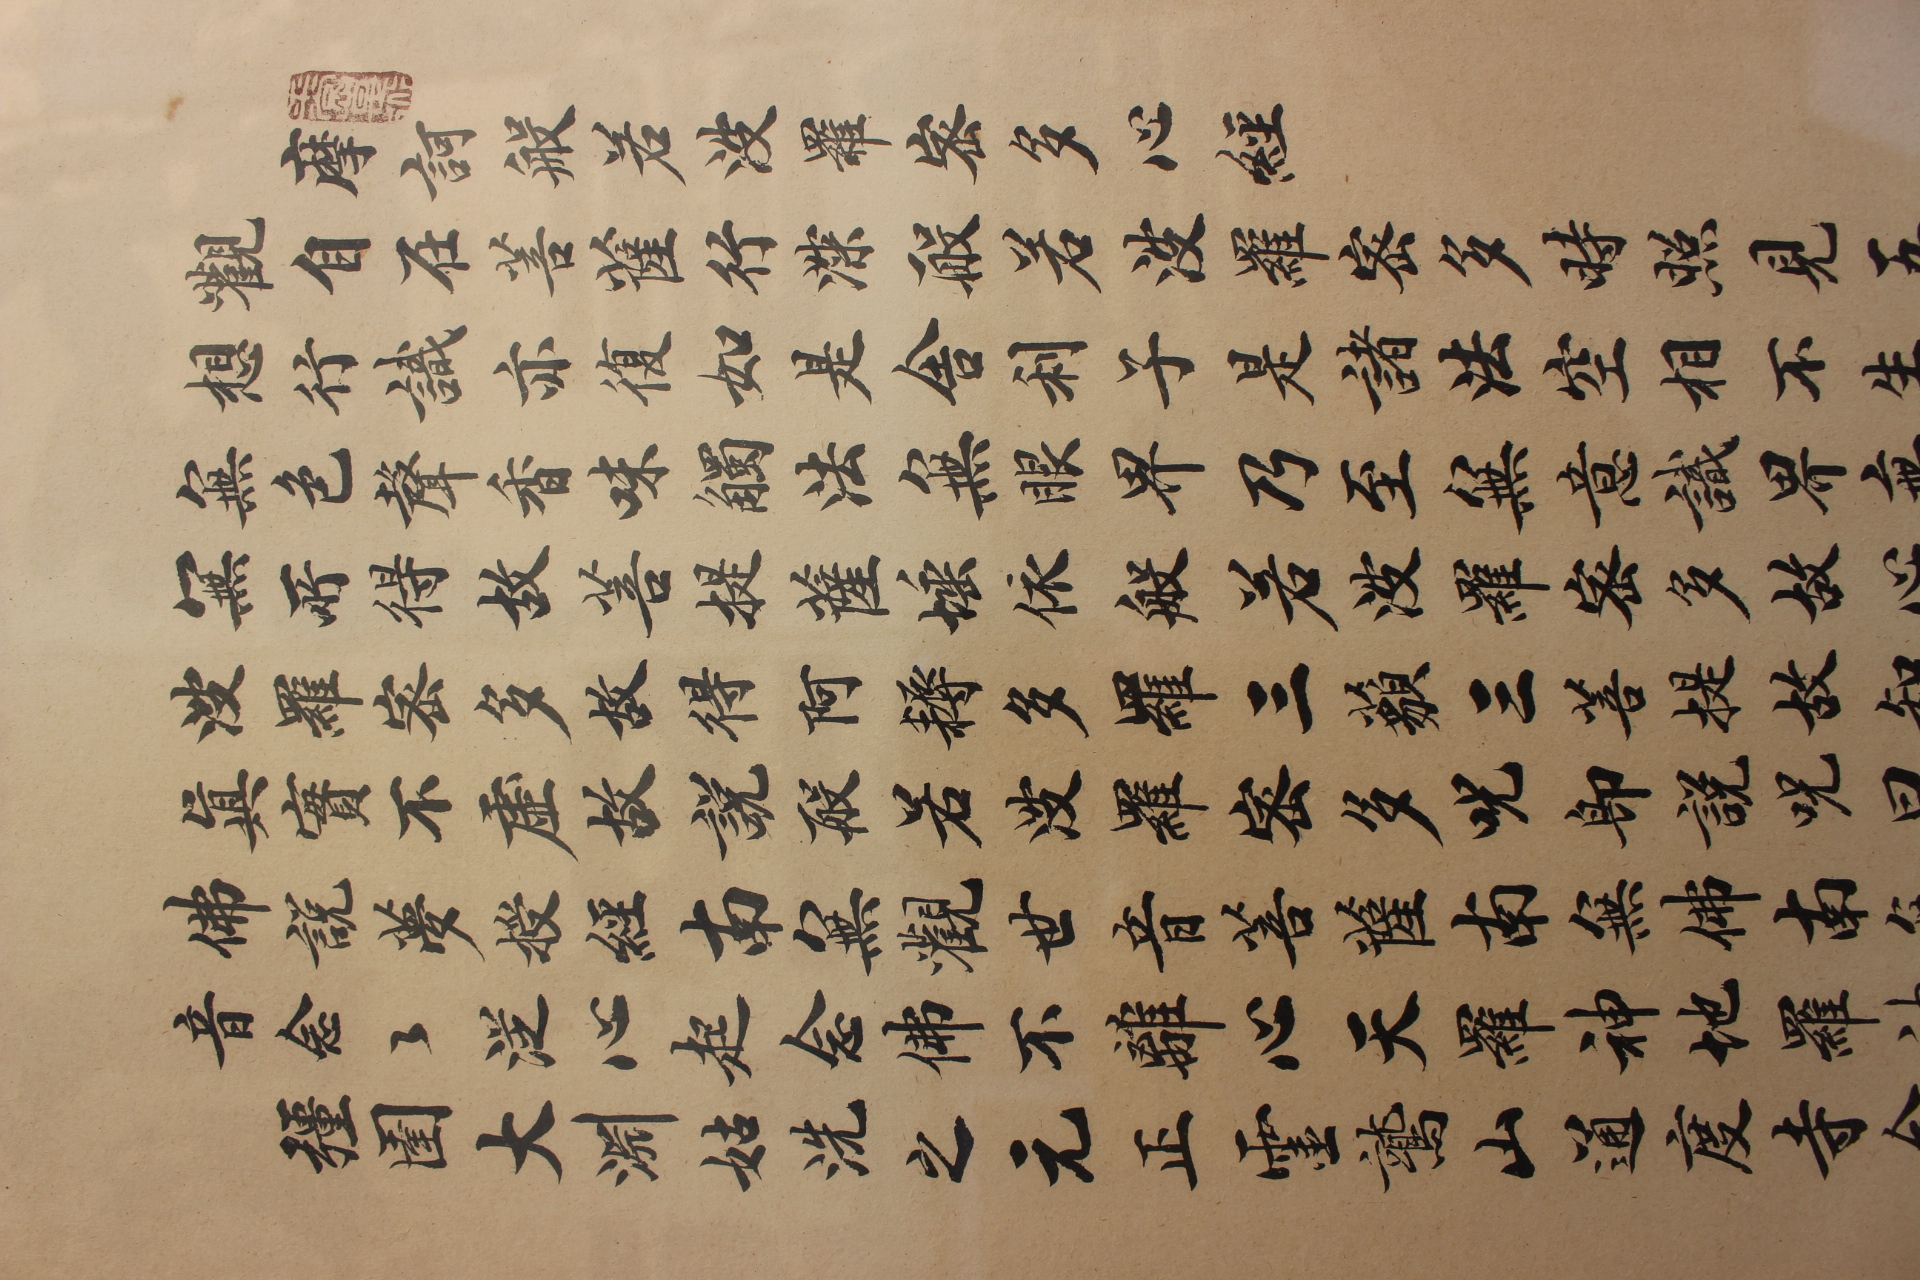 摩訶般若波羅密多心經
觀自在菩薩行深般若波羅密多時照見五
想行識亦復如是舍利子是諸法空相不生
無色聲香味觸法無眼界乃至無意識界無
無所得故菩提薩埵依般若波羅密多故心
波羅密多故得阿耨多羅三藐三菩提故知
眞實不虛故說般若波羅密多呪卽說呪曰
佛說夢授經南無觀世音菩薩南無佛南無
音念々從心起念佛不離心天羅神地羅神
彊圉大淵姑洗之元正靈鷲山通度寺